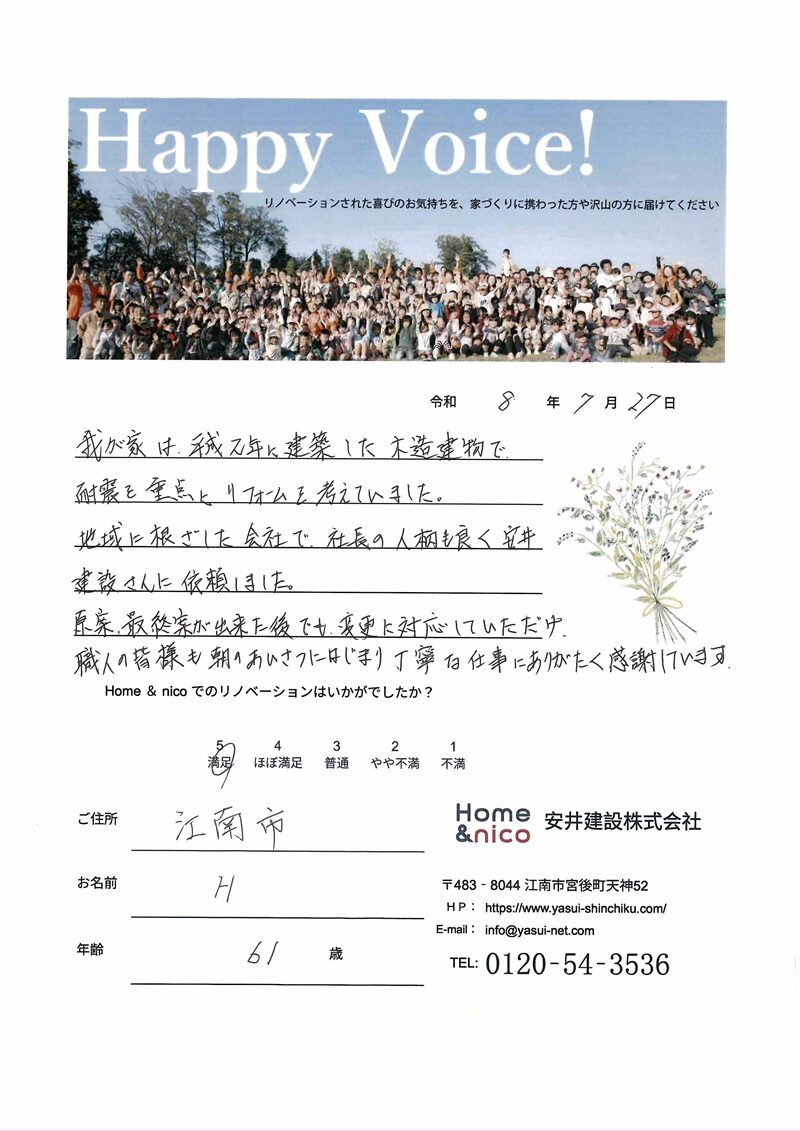 Happy Voice!
リノベーションされた喜びのお気持ちを、家づくりに携わった方や沢山の方に届けてください
令和 8 年 7 月 27 日
我が家は、平成元年に建築した木造建物で、
耐震を重点にリフォームを考えていました。
地域に根ざした会社で、社長の人柄も良く安井
建設さんに依頼しました。
原案、最終案が出来た後でも、変更に対応していただけ、
職人の皆様も朝のあいさつにはじまり丁寧な仕事にありがたく感謝しています。
Home & nico でのリノベーションはいかがでしたか?
5 4 3 2 1
満足 ほぼ満足 普通 やや不満 不満
ご住所 江南市
お名前 H
年齢 61 歳
Home &nico 安井建設株式会社
〒483‐8044 江南市宮後町天神52
HP: https://www.yasui-shinchiku.com/
E-mail: info@yasui-net.com
TEL: 0120-54-3536